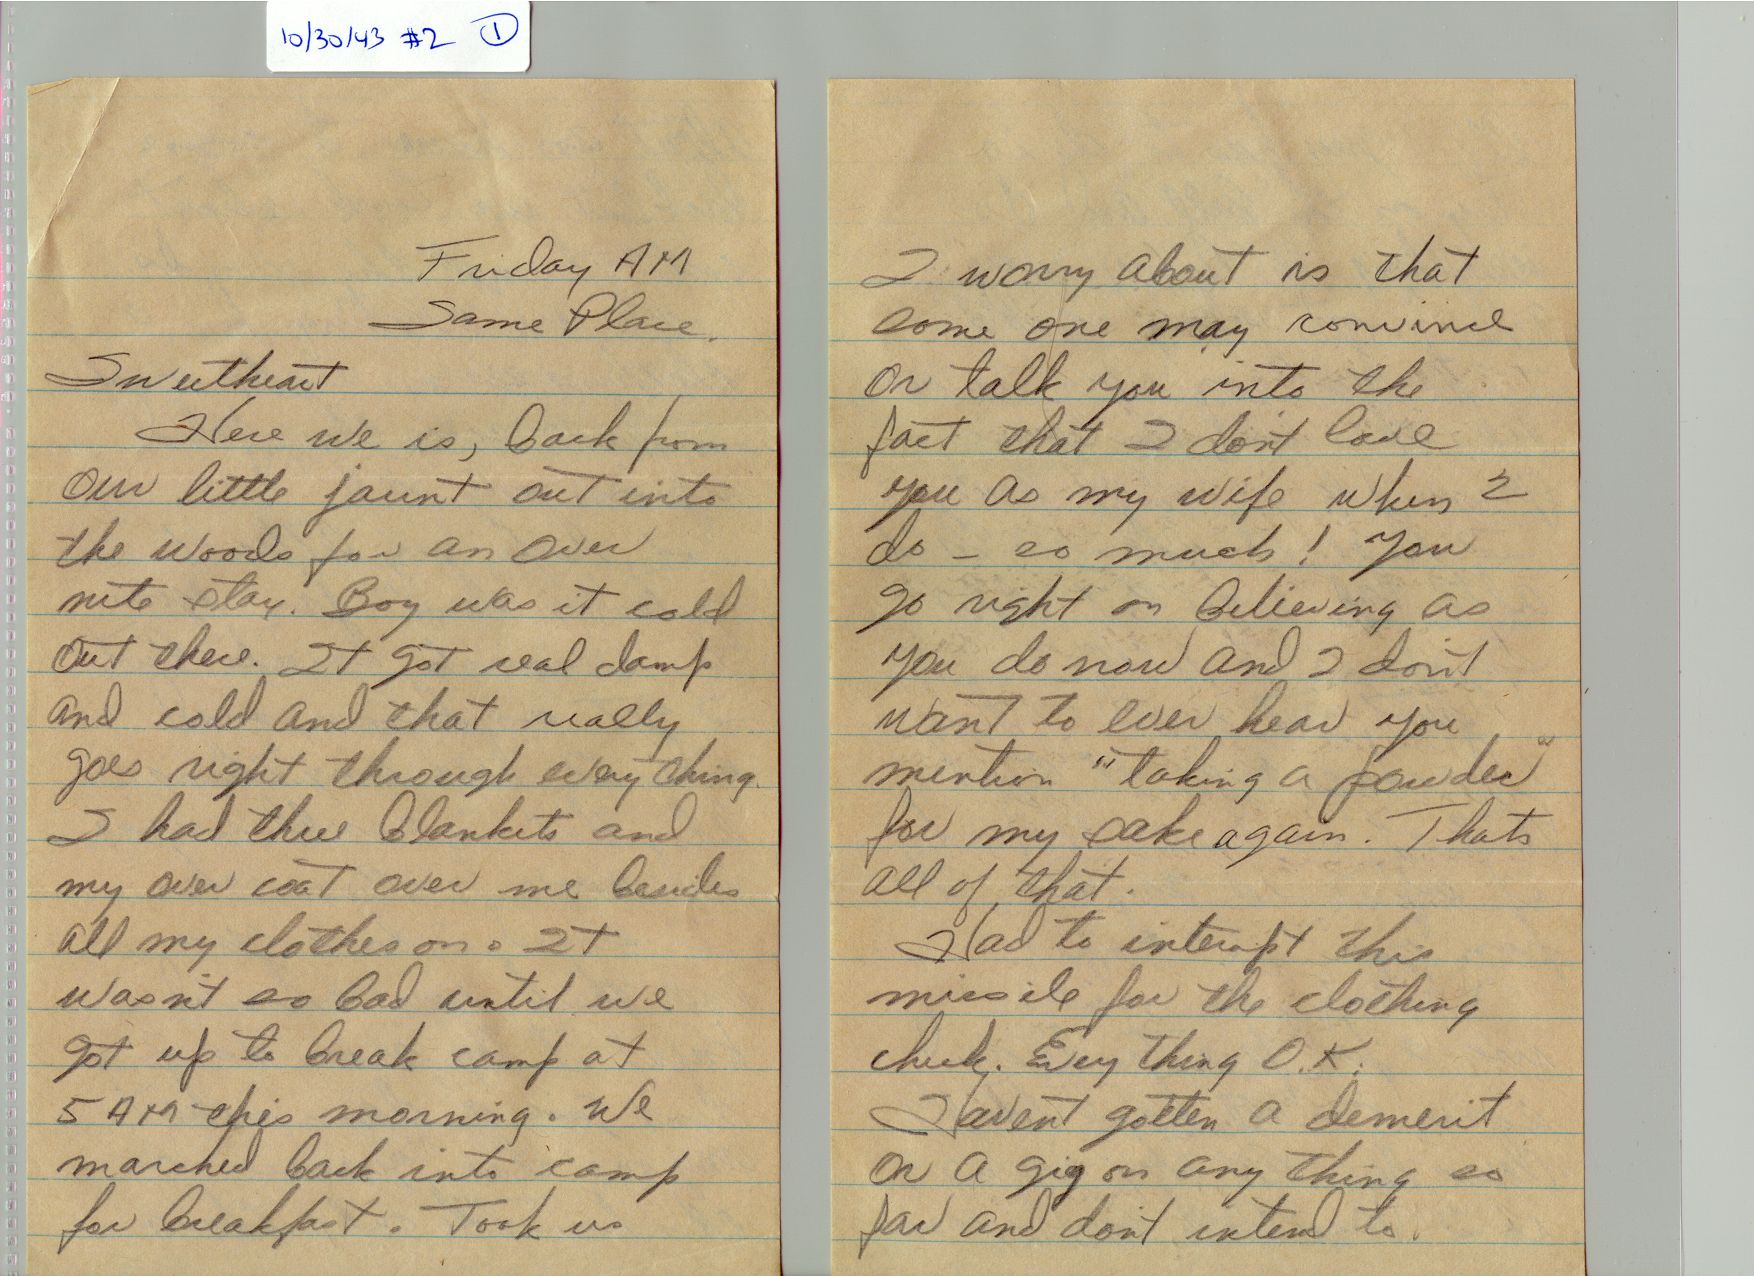 10/30/43 #2 1
Friday AM
Same Place.
Sweetheart
Here we is, back from
our little jaunt out into
the woods for an over
nite stay. Boy was it cold
out there. It got real damp
and cold and that really
goes right through every thing.
I had three blankets and
my over coat over me besides
all my clothes on. It
wasn't so bad until we
got up to break camp at
5 AM this morning. We
marched back into camp
for breakfast. Took us
I worry about is that
some one may convince
or talk you into the
fact that I don't love
you as my wife when I
do - so much! You
go right on believing as
you do now and I don't
want to ever hear you
mention "taking a powder"
for my sake again. Thats
all of that.
Had to interupt this
missile for the clothing
check. Every thing O.K.
Havent gotten a demerit
or a gig on any thing so
far and don't intend to.